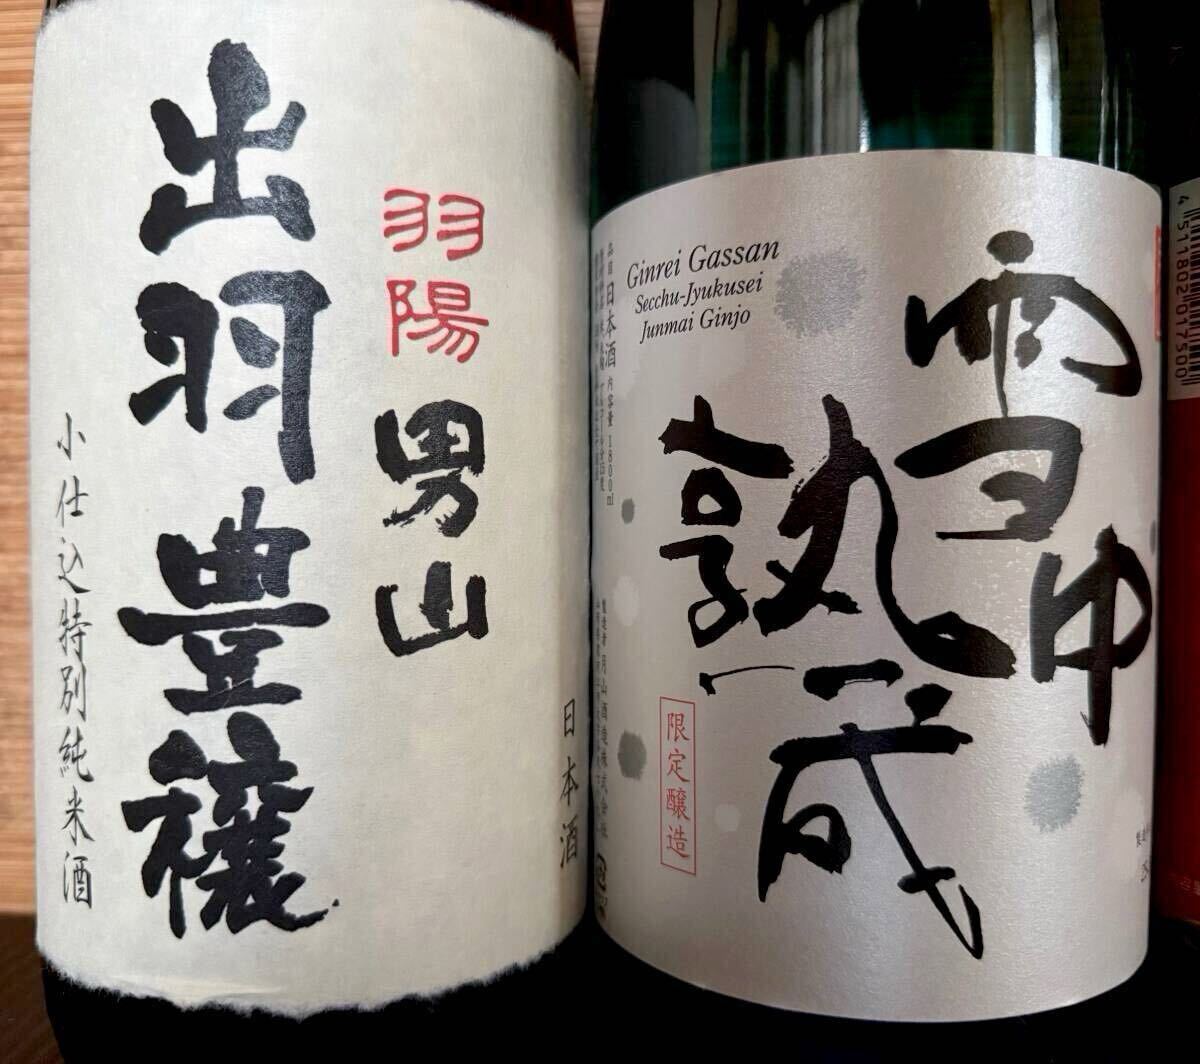 羽陽男山
出羽豊穣
小仕込特別純米酒
日本酒
Ginrei Gassan
Secchu-Jyukusei
Junmai Ginjo
雪中
熟成
限定醸造
品目 日本酒 内容量 1800ml
製造者 月山酒造株式会社
4 511802 017500